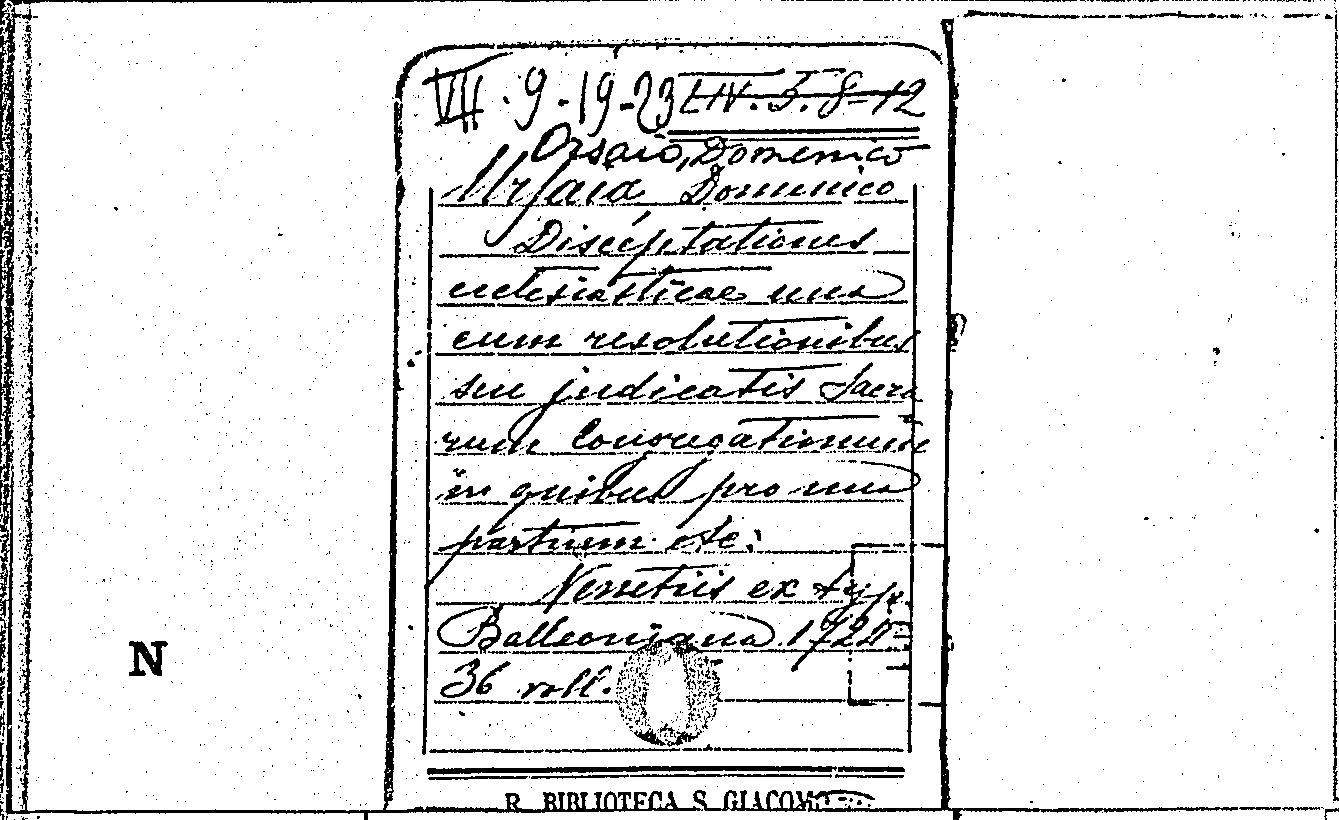 VII. 9-19-23 LIV. 5. 8-12
Orsaio, Domenico
Ursaia Domenico
Disceptationes
ecclesiasticae una
cum resolutionibus
seu judicatis Sacra
rum Congregationum
in quibus pro una
partium etc:
Venetiis ex typ.
Balleoniana 1724-
36 voll.
N
R. BIBLIOTECA S. GIACOMO